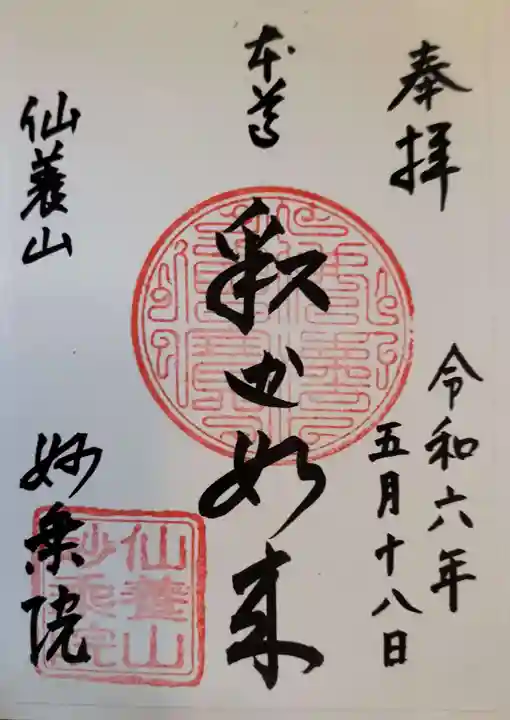 奉拝
令和六年
五月十八日
本尊
釈迦如来
仙養山
妙乗院
仙養山
妙乗院